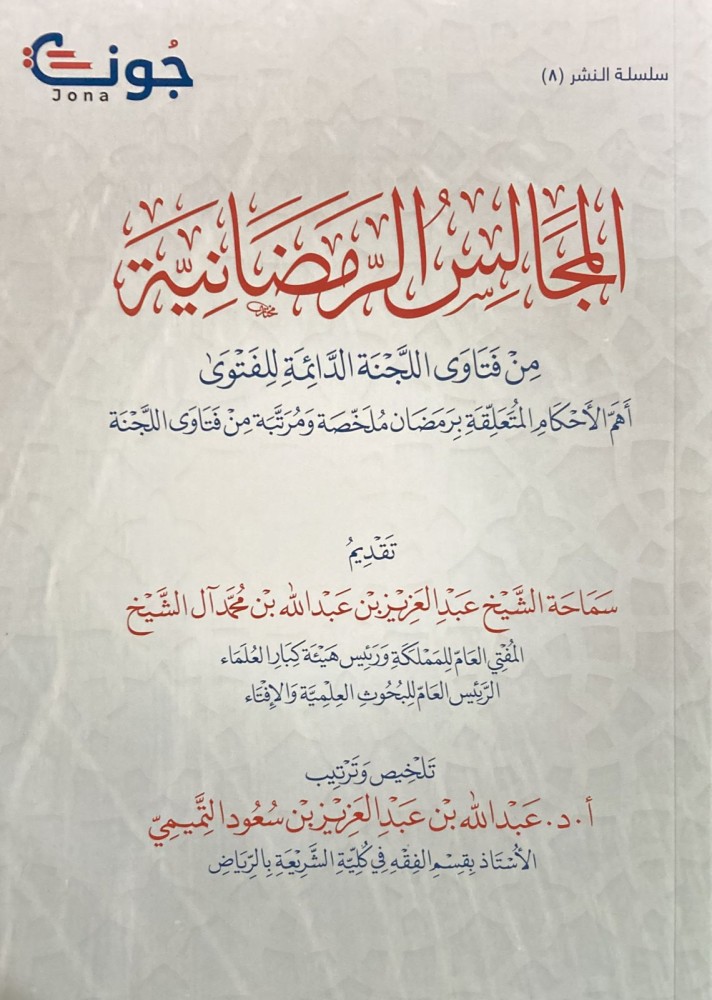 سلسلة النشر (٨)
جونـا
Jona
المَجَالِسُ الرَّمَضَانِيَّة
مِنْ فَتَاوَى اللَّجْنَة الدَّائِمَةِ لِلفَتْوَىٰ
أَهَمّ الأَحْكَامِ المُتُعَلِّقَةِ بِرَمَضَان مُلَخّصَة وَمُرَتَّبَة مِنْ فَتَاوَى اللَّجْنَة
تَقْدِيمُ
سَمَاحَة الشَّيْخ عَبْدِ العَزِيْزِ بْن عَبْدِ اللهِ بْن مُحَمَّد آلِ الشَّيْخ
المُفْتِي العَامّ لِلمَمْلَكَةِ وَرَئِيس هَيْئَة كِبَارِ العُلَمَاء
الرَّئِيس العَامّ لِلبُحُوثِ العِلْمِيَّةِ وَالإِفْتَاء
تَلْخِيص وَتَرْتِيب
أ. د. عَبْدُ اللهِ بْن عَبْدِ العَزِيْزِ بْن سُعُود التَّمِيمِيّ
الأُسْتَاذ بِقِسْمِ الفِقْهِ فِي كُلِيَّةِ الشَّرِيْعَةِ بِالرِّيَاضِ